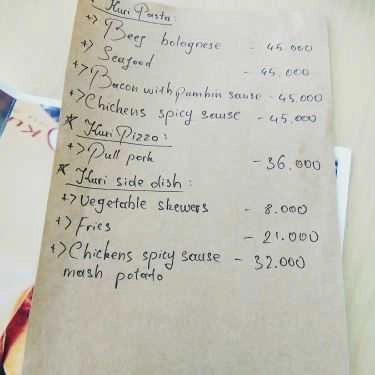 Kuri Pasta:
+> Beef bolognese - 45.000
+> Seafood - 45.000
+> Bacon with pumkin sause - 45.000
+> Chickens spicy sause - 45.000
* Kuri Pizza:
+> Pull pork - 36.000
* Kuri side dish:
+> Vegetable skewers - 8.000
+> Fries - 21.000
+> Chickens spicy sause - 32.000
mash potato